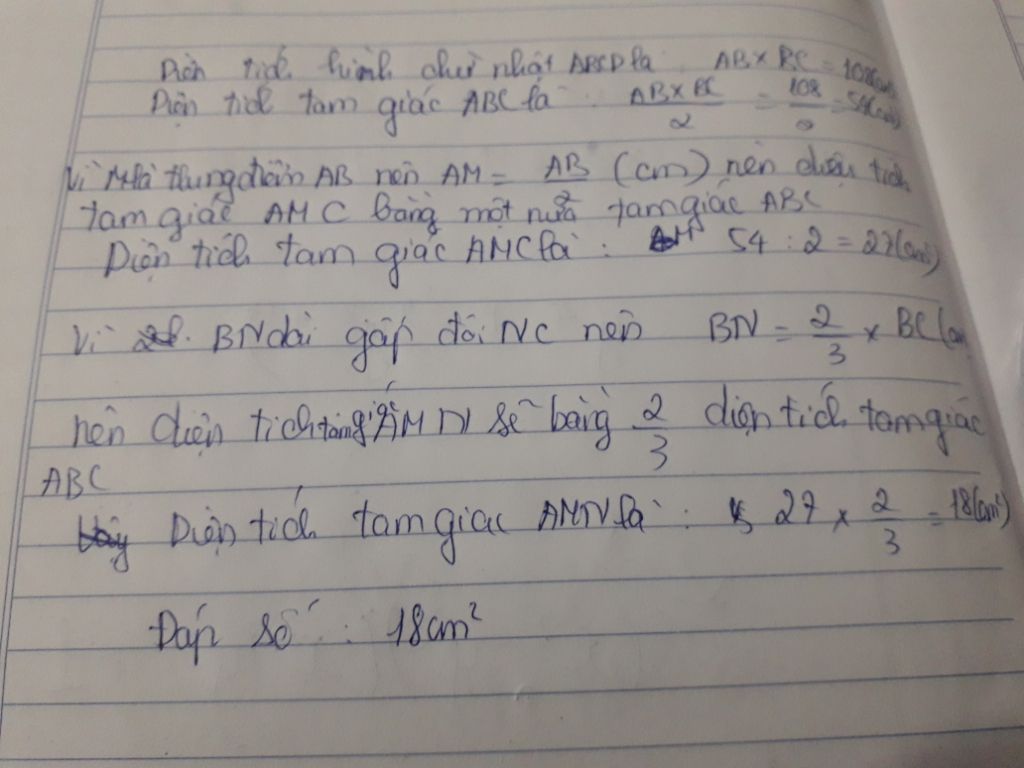 Diện tích hình chữ nhật ABCD là AB x BC = 108(cm²)
Diện tích tam giác ABC là: AB x BC / 2 = 108 / 2 = 54(cm²)
Vì M là trung điểm AB nên AM = AB / 2 (cm) nên diện tích
tam giác AMC bằng một nửa tam giác ABC
Diện tích tam giác AMC là: 54 : 2 = 27(cm²)
Vì BN dài gấp đôi NC nên BN = 2/3 x BC (cm
nên diện tích tam giác AMN sẽ bằng 2/3 diện tích tam giác
ABC
Diện tích tam giác AMN là: 27 x 2/3 = 18(cm²)
Đáp số: 18cm²